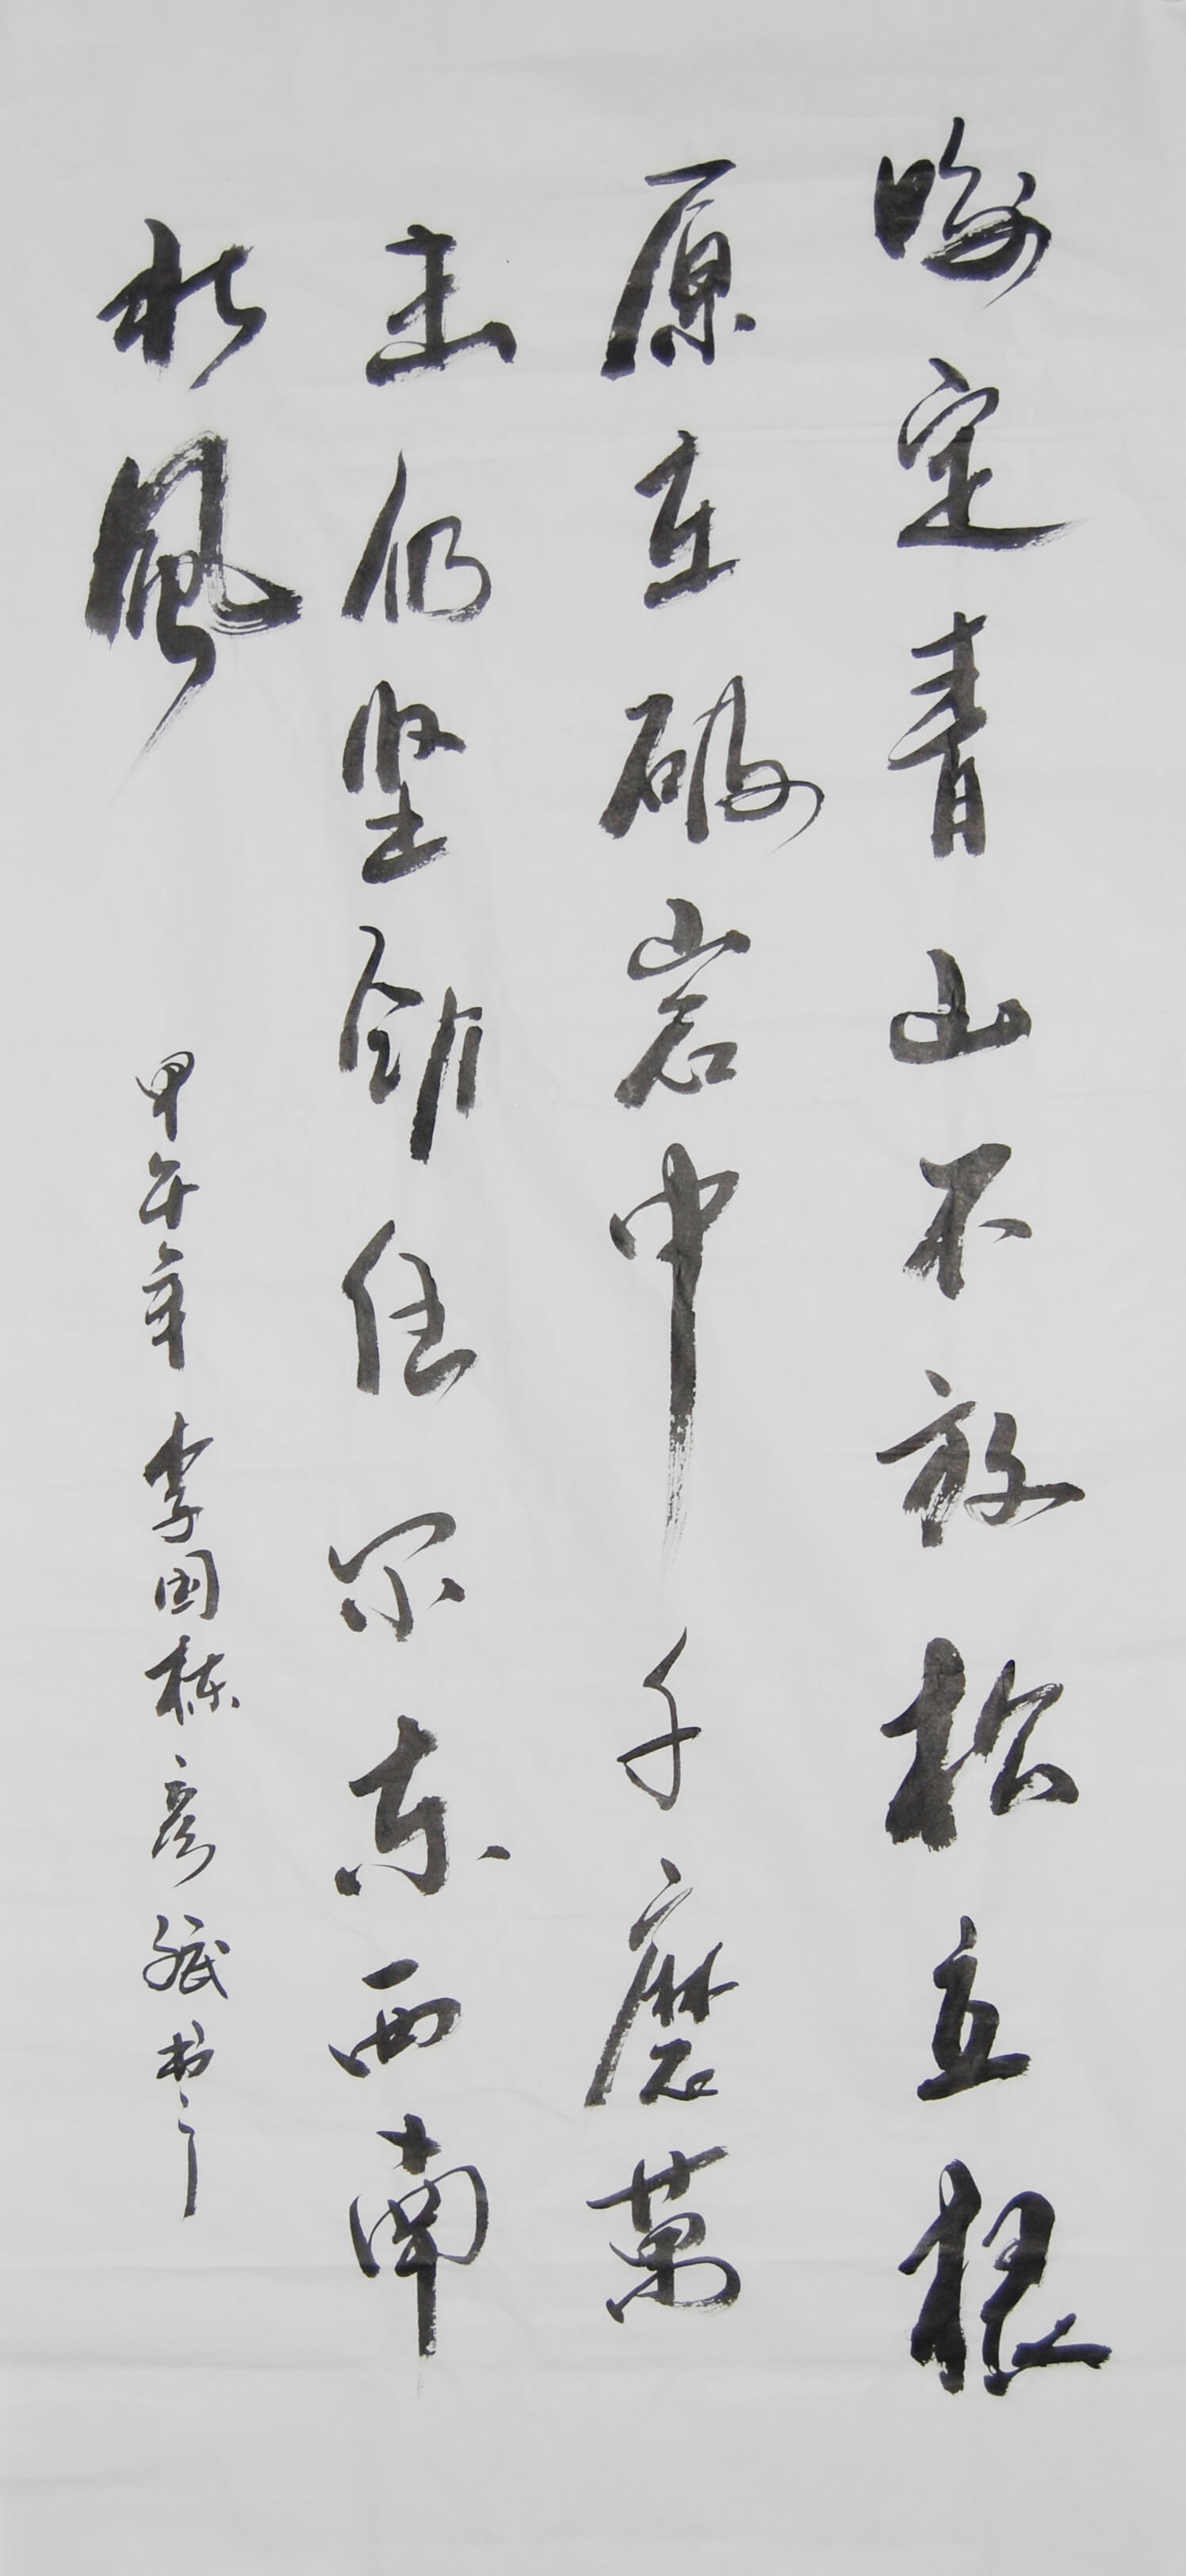 咬定青山不放松立根
原在破岩中千磨萬
击仍坚劲任尔东西南
北風
甲午年李国栋